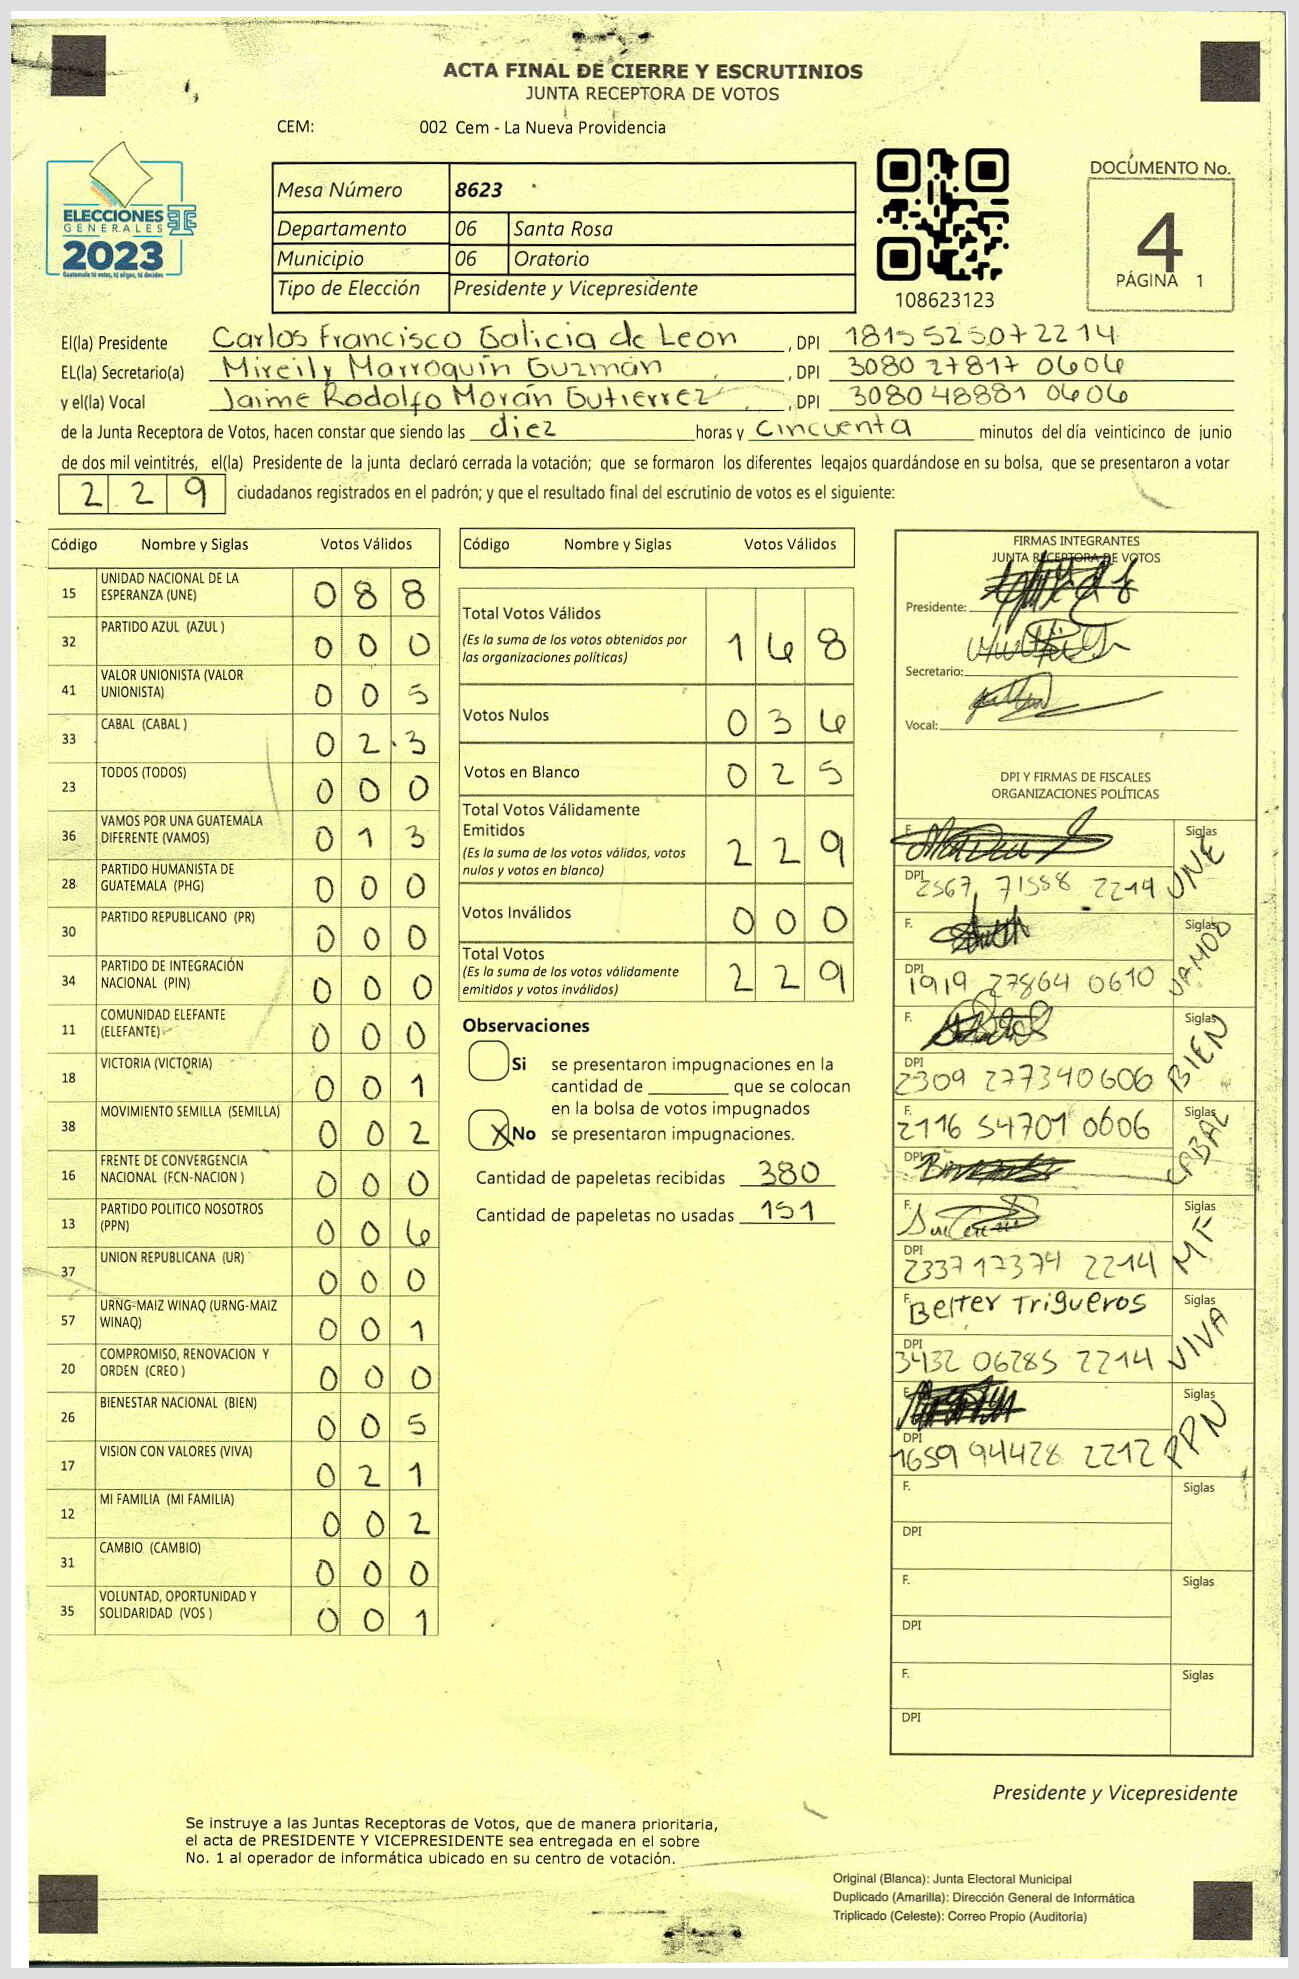 ACTA FINAL DE CIERRE Y ESCRUTINIOS
JUNTA RECEPTORA DE VOTOS
CEM: 002 Cem - La Nueva Providencia
ELECCIONES
GENERALES
2023
Guatemala tú votas, tú eliges, tú decides
Mesa Número 8623
Departamento 06 Santa Rosa
Municipio 06 Oratorio
Tipo de Elección Presidente y Vicepresidente
108623123
DOCUMENTO No.
4
PÁGINA 1
El(la) Presidente Carlos Francisco Galicia de León , DPI 1815 52507 2214
EL(la) Secretario(a) Mireily Marroquín Guzmán , DPI 3080 27817 0606
y el(la) Vocal Jaime Rodolfo Morán Gutierrez , DPI 3080 48881 0606
de la Junta Receptora de Votos, hacen constar que siendo las diez horas y cincuenta minutos del día veinticinco de junio
de dos mil veintitrés, el(la) Presidente de la junta declaró cerrada la votación; que se formaron los diferentes legajos guardándose en su bolsa, que se presentaron a votar
229 ciudadanos registrados en el padrón; y que el resultado final del escrutinio de votos es el siguiente:
Código Nombre y Siglas Votos Válidos
15 UNIDAD NACIONAL DE LA
ESPERANZA (UNE) 088
32 PARTIDO AZUL (AZUL ) 000
41 VALOR UNIONISTA (VALOR
UNIONISTA) 005
33 CABAL (CABAL ) 023
23 TODOS (TODOS) 000
36 VAMOS POR UNA GUATEMALA
DIFERENTE (VAMOS) 013
28 PARTIDO HUMANISTA DE
GUATEMALA (PHG) 000
30 PARTIDO REPUBLICANO (PR) 000
34 PARTIDO DE INTEGRACIÓN
NACIONAL (PIN) 000
11 COMUNIDAD ELEFANTE
(ELEFANTE) 000
18 VICTORIA (VICTORIA) 001
38 MOVIMIENTO SEMILLA (SEMILLA) 002
16 FRENTE DE CONVERGENCIA
NACIONAL (FCN-NACION ) 000
13 PARTIDO POLITICO NOSOTROS
(PPN) 006
37 UNION REPUBLICANA (UR) 000
57 URNG-MAIZ WINAQ (URNG-MAIZ
WINAQ) 001
20 COMPROMISO, RENOVACION Y
ORDEN (CREO ) 000
26 BIENESTAR NACIONAL (BIEN) 005
17 VISION CON VALORES (VIVA) 021
12 MI FAMILIA (MI FAMILIA) 002
31 CAMBIO (CAMBIO) 000
35 VOLUNTAD, OPORTUNIDAD Y
SOLIDARIDAD (VOS ) 001
Código Nombre y Siglas Votos Válidos
Total Votos Válidos
(Es la suma de los votos obtenidos por
las organizaciones políticas) 168
Votos Nulos 036
Votos en Blanco 025
Total Votos Válidamente
Emitidos
(Es la suma de los votos válidos, votos
nulos y votos en blanco) 229
Votos Inválidos 000
Total Votos
(Es la suma de los votos válidamente
emitidos y votos inválidos) 229
Observaciones
Si se presentaron impugnaciones en la
cantidad de ________ que se colocan
en la bolsa de votos impugnados
X No se presentaron impugnaciones.
Cantidad de papeletas recibidas 380
Cantidad de papeletas no usadas 151
FIRMAS INTEGRANTES
JUNTA RECEPTORA DE VOTOS
Presidente:
Secretario:
Vocal:
DPI Y FIRMAS DE FISCALES
ORGANIZACIONES POLÍTICAS
F. Siglas UNE
DPI 2567 71588 2214
F. Siglas VAMOS
DPI 1919 27864 0610
F. Siglas BIEN
DPI 2309 27734 0606
F. 2116 54701 0606 Siglas CABAL
DPI
F. Siglas MF
DPI 2337 17374 2214
F. Belter Trigueros Siglas VIVA
DPI 3432 06285 2214
F. Siglas PPN
DPI 1659 94428 2212
F. Siglas
DPI
F. Siglas
DPI
F. Siglas
DPI
Presidente y Vicepresidente
Se instruye a las Juntas Receptoras de Votos, que de manera prioritaria,
el acta de PRESIDENTE Y VICEPRESIDENTE sea entregada en el sobre
No. 1 al operador de informática ubicado en su centro de votación.
Original (Blanca): Junta Electoral Municipal
Duplicado (Amarilla): Dirección General de Informática
Triplicado (Celeste): Correo Propio (Auditoría)